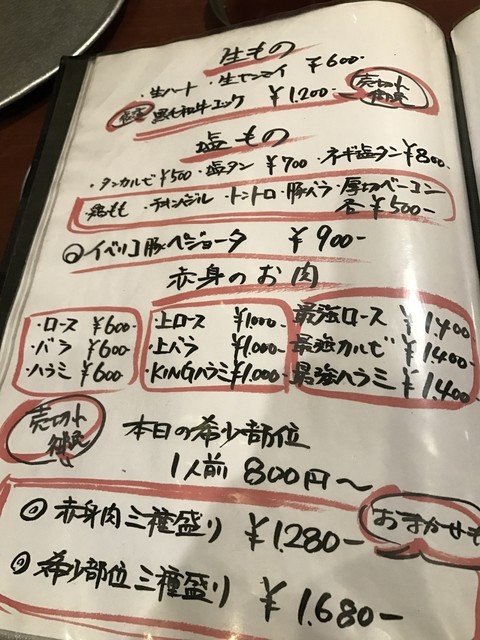 生もの
・生ハート ・生センマイ ¥600-
黒毛和牛ユッケ ¥1,200-
売切れ御免
塩もの
・タンカルビ ¥500 ・塩タン ¥700 ・ネギ塩タン ¥800-
鶏もも ・チキンバジル ・トントロ ・豚バラ ・厚切ベーコン
各 ¥500-
イベリコ豚ベジョータ ¥900-
赤身のお肉
・ロース ¥600- ・上ロース ¥1,000- 最強ロース ¥1,400
・バラ ¥600- ・上バラ ¥1,000- 最強カルビ ¥1,400-
・ハラミ ¥600 ・KINGハラミ ¥1,000- 最強ハラミ ¥1,400
売切れ御免
本日の希少部位
1人前 800円〜
おまかせも
赤身肉三種盛り ¥1,280-
希少部位三種盛り ¥1,680-